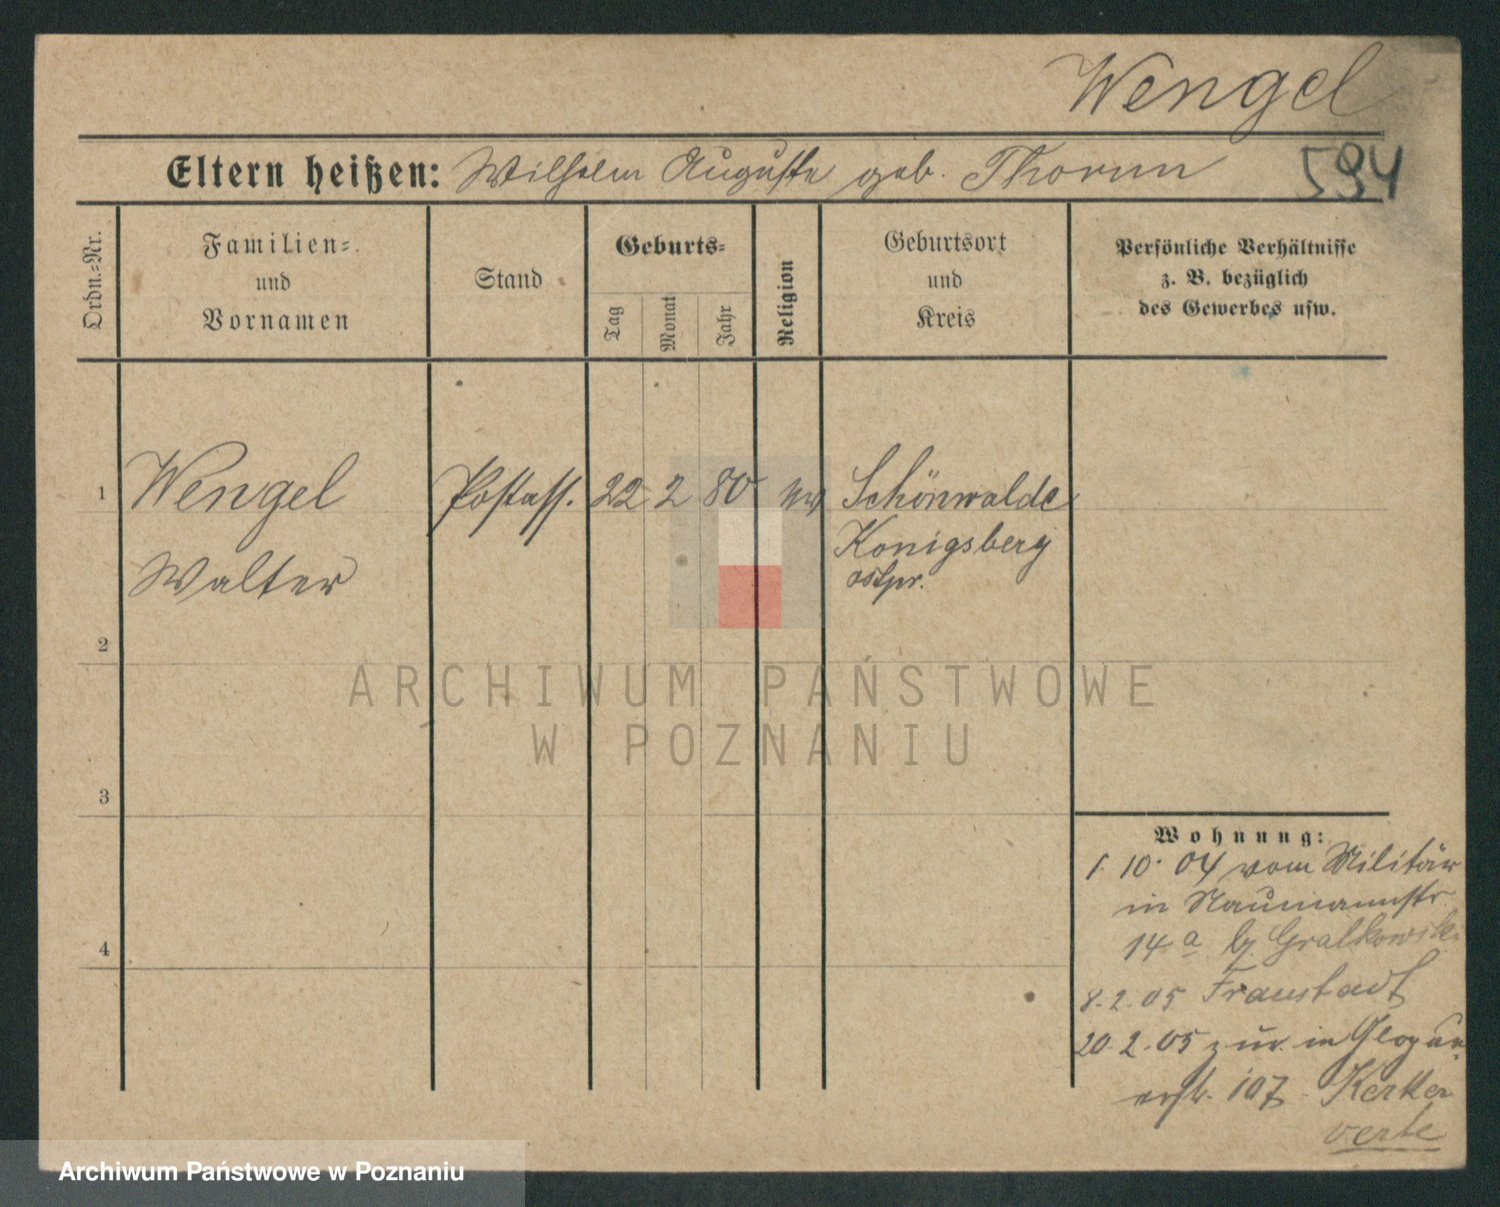 Wengel
594
Eltern heißen: Wilhelm Auguste geb. Thorun
Ordn.=Nr.
Familien=
und
Vornamen
Stand
Geburts=
Tag
Monat
Jahr
Religion
Geburtsort
und
Kreis
Persönliche Verhältnisse
z. B. bezüglich
des Gewerbes usw.
1 Wengel Postass. 22 2 80 ev Schönwalde
Königsberg
ostpr.
Walter
2
3
4
Wohnung:
1. 10. 04 vom Militär
in Naumannstr.
14 a b. Gralkowski
8. 2. 05 Fraustadt
20. 2. 05 zur. in Glogau
107
verte
ARCHIWUM PAŃSTWOWE
W POZNANIU
Archiwum Państwowe w Poznaniu